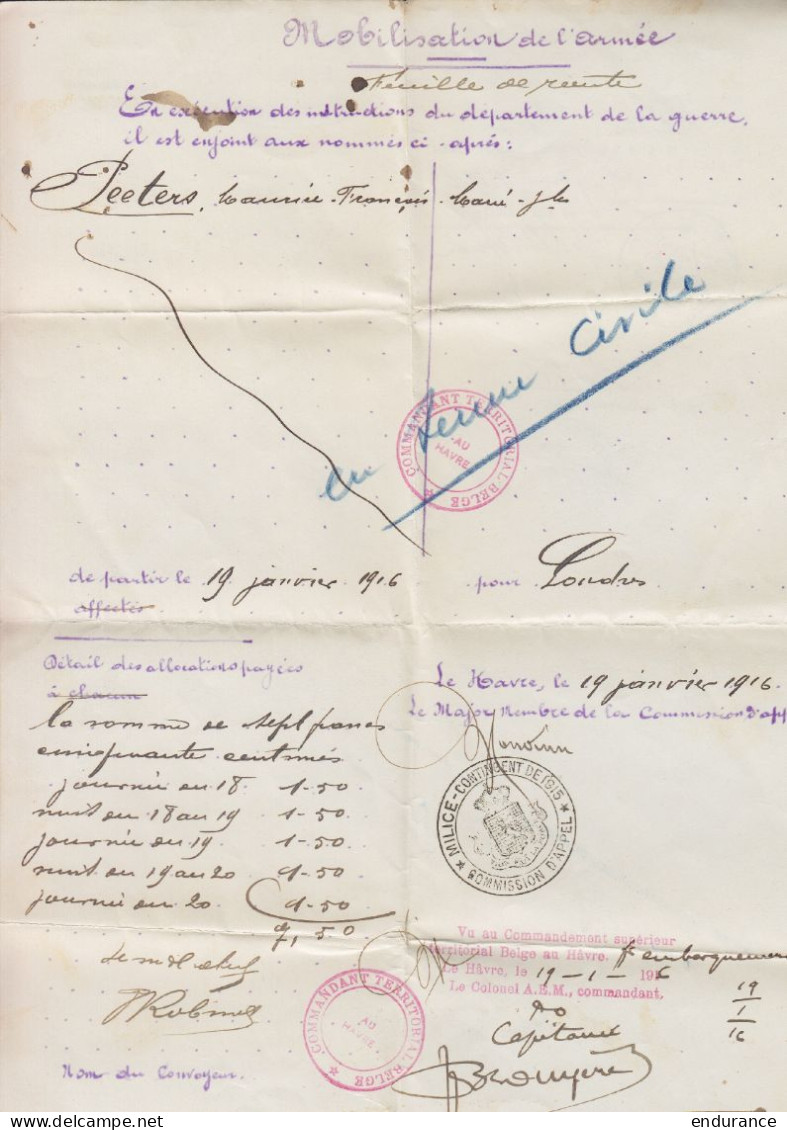 Mobilisation de l'armée
Feuille de route
En exécution des instructions du département de la guerre,
il est enjoint aux nommés ci-après:
Peeters, Maurice-François-Marie-Jh
en tenue civile
COMMANDANT TERRITORIAL BELGE
AU
HAVRE
de partir le 19 janvier 1916 pour Londres
affectés
Détail des allocations payées
à chacun
la somme de sept francs
cinquante centimes
journée du 18. 1-50
nuit du 18 au 19 1-50
journée du 19. 1-50
nuit du 19 au 20 1-50
journée du 20. 1-50
7,50
Le Havre, le 19 janvier 1916.
Le Major Membre de la Commission d'app
MILICE-CONTINGENT DE 1915
COMMISSION D'APPEL
Vu au Commandement supérieur
territorial Belge au Hâvre. pr embarquement
Le Hâvre, le 19-1-1916
Le Colonel A.E.M., commandant,
19
1
16
Do
Capitaine
COMMANDANT TERRITORIAL BELGE
AU
HAVRE
Nom du Convoyeur.
© delcampe.net
endurance